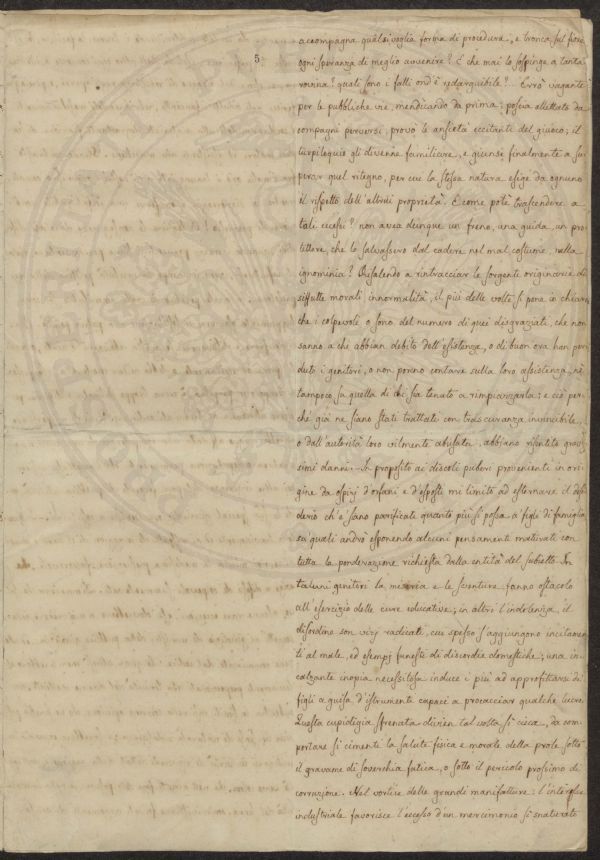 5
accompagna qualsivoglia forma di procedura, e tronca sul fiore
ogni speranza di meglio avvenire? E che mai lo sospinge a tanta
rovina? quali sono i fatti ond'è redarguibile?... Errò vagante
per le pubbliche vie, mendicando da prima; poscia allettato da
compagni perversi, provò le ansietà eccitanti del giuoco; il
turpiloquio gli divenne famigliare, e giunse finalmente a su-
perar quel ritegno, per cui la stessa natura esige da ognuno
il rispetto dell'altrui proprietà. E come potè trascendere a
tali eccessi? non avea dunque un freno, una guida, un pro-
tettore, che lo salvassero dal cadere nel mal costume, nella
ignominia? Risalendo a rintracciar le sorgenti originarie di
siffatte morali innormalità, il più delle volte si pone in chiaro
che i colpevoli o sono del numero di quei disgraziati, che non
sanno a chi abbian debito dell'esistenza, o di buon ora han per-
duto i genitori, o non ponno contare sulla loro assistenza, nè
tampoco su quella di chi sia tenuto a rimpiazzarla: e ciò per-
chè già ne siano stati trattati con trascuranza invincibile,
o dall'autorità loro vilmente abusata, abbiano risentito gravis-
simi danni. In proposito ai discoli puberi provenienti in ori-
gine da ospizj d'orfani e d'esposti mi limito ad esternare il desi-
derio ch'e' siano parificati quanto più si possa a' figli di famiglia,
su quali andrò esponendo alcuni pensamenti maturati con
tutta la ponderazione richiesta dalla entità del subietto. In
taluni genitori la miseria e le sventure fanno ostacolo
all'esercizio delle cure educative; in altri l'indolenza, il
disordine son vizj radicati, cui spesso s'aggiungono incitamen-
ti al male, ed esempj funesti di discordie domestiche; una in-
calzante inopia necessitosa induce i più ad approfittarsi dei
figli a guisa d'istrumenti capaci a procacciar qualche lucro.
Questa cupidigia sfrenata divien tal volta sì cieca, da com-
portare si cimenti la salute fisica e morale della prole sotto
il gravame di soverchia fatica, o sotto il pericolo prossimo di
corruzione. Nel vortice delle grandi manifatture l'interesse
industriale favorisce l'eccesso d'un mercimonio sì snaturato